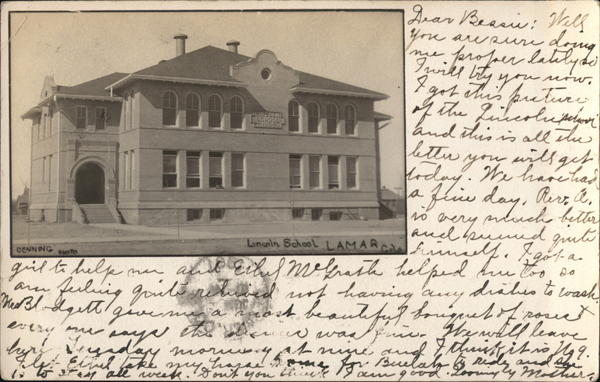 Dear Bessie: Well
you are sure doing
me proper lately so
I will try you now.
I got this picture
of the Lincoln school
and this is all the
better you will get
today. We have had
a fine day. Rev. A.
is very much better
and seemed quite
himself. I got a
LINCOLN
SCHOOL
DENNING PHOTO
Lincoln School LAMAR Colo
girl to help me and Ethel McGrath helped me too so
am feeling quite relieved not having any dishes to wash.
Mrs Blodgett gave me a most beautiful bouquet of roses &
every one says the dinner was fine. We will leave
here Tuesday morning at nine and I think it is No 9.
let Ethel take my horse
to all week. Don't you think I am good. Lovingly Mother